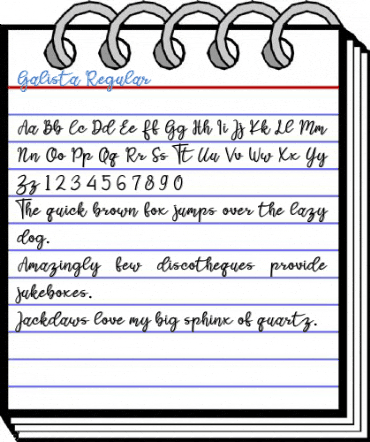 Galista Regular
Aa Bb Cc Dd Ee Ff Gg Hh Ii Jj Kk Ll Mm
Nn Oo Pp Qq Rr Ss Tt Uu Vv Ww Xx Yy
Zz 1 2 3 4 5 6 7 8 9 0
The quick brown fox jumps over the lazy
dog.
Amazingly few discotheques provide
jukeboxes.
Jackdaws love my big sphinx of quartz.